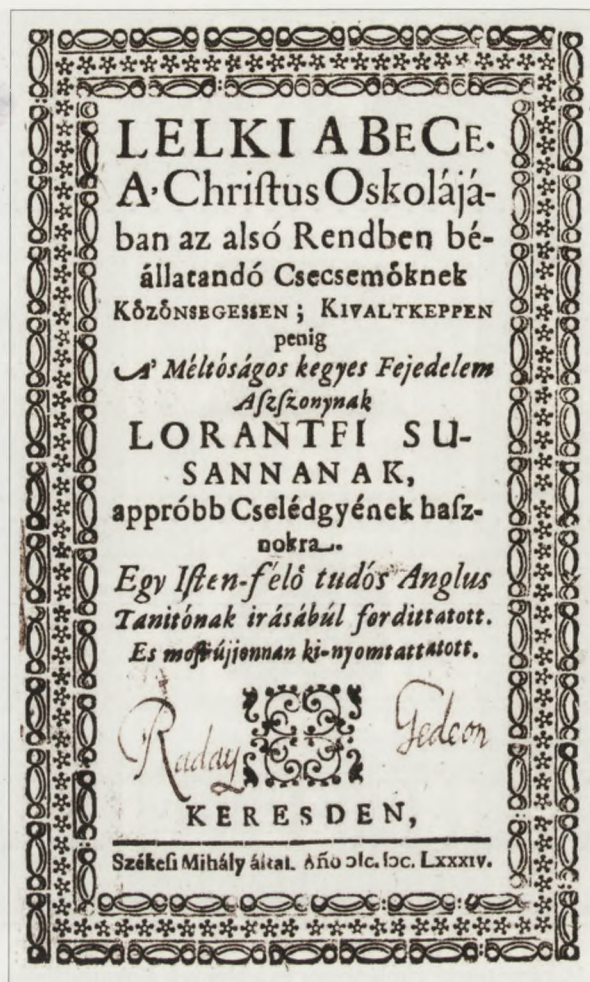 LELKI ABECE.
A' Chriſtus Oskolájá-
ban az alsó Rendben bé-
állatandó Csecsemőknek
KőZőNSEGESSEN ; KIVALTKEPPEN
penig
A' Méltóságos kegyes Fejedelem
Aſzſzonynak
LORANTFI SU-
SANNANAK,
appróbb Cselédgyének haſz-
nokra.
Egy Iſten-félő tudós Anglus
Tanitónak irásábúl fordittatott.
Es moſt újjonnan ki-nyomtattatott.
Raday Gedeon
KERESDEN,
Székeſi Mihály által. Año LXXXIV.